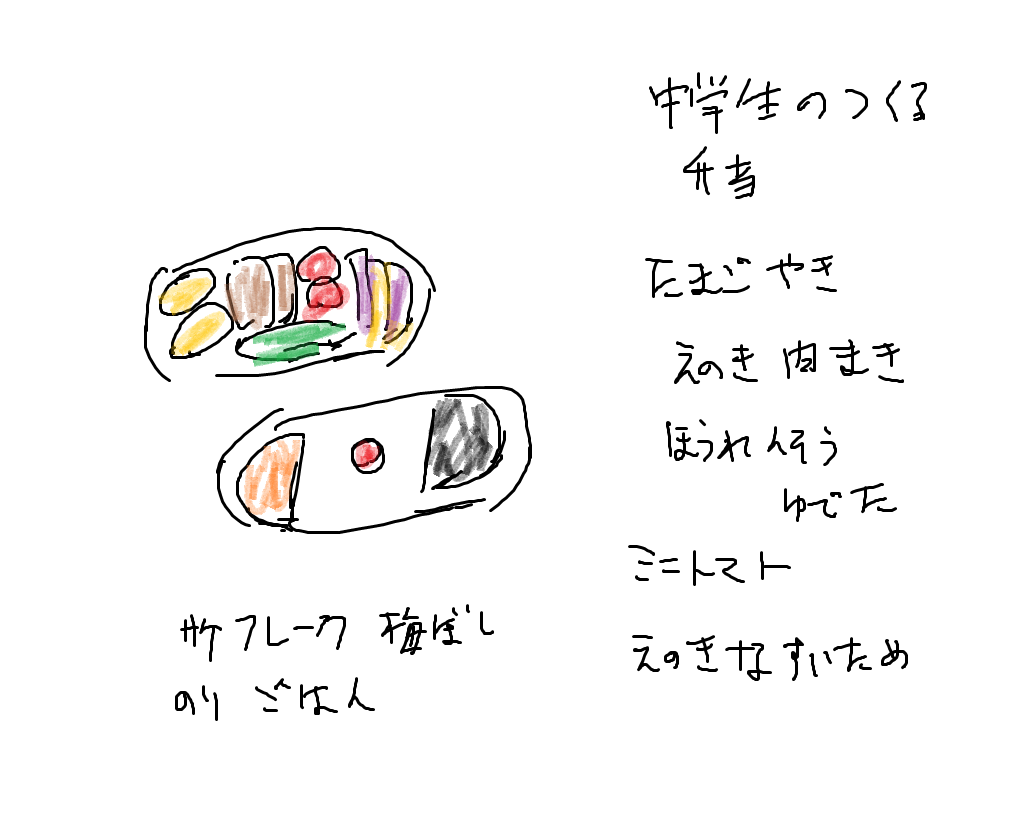 中学生のつくる
弁当
たまごやき
えのき肉まき
ほうれんそう
ゆでた
ミニトマト
えのきなすいため
サケフレーク 梅ぼし
のり ごはん